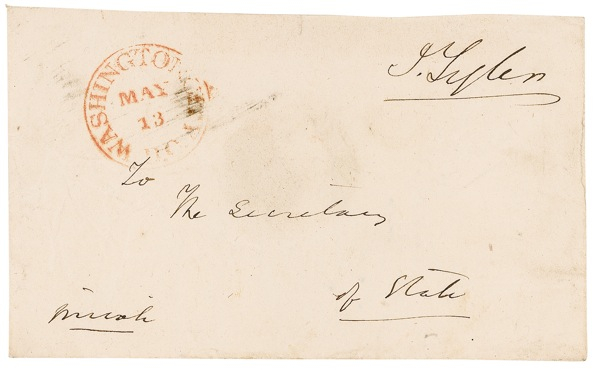 J. Tyler
WASHINGTON CITY
MAY
13
To
The Secretary
of State
Private